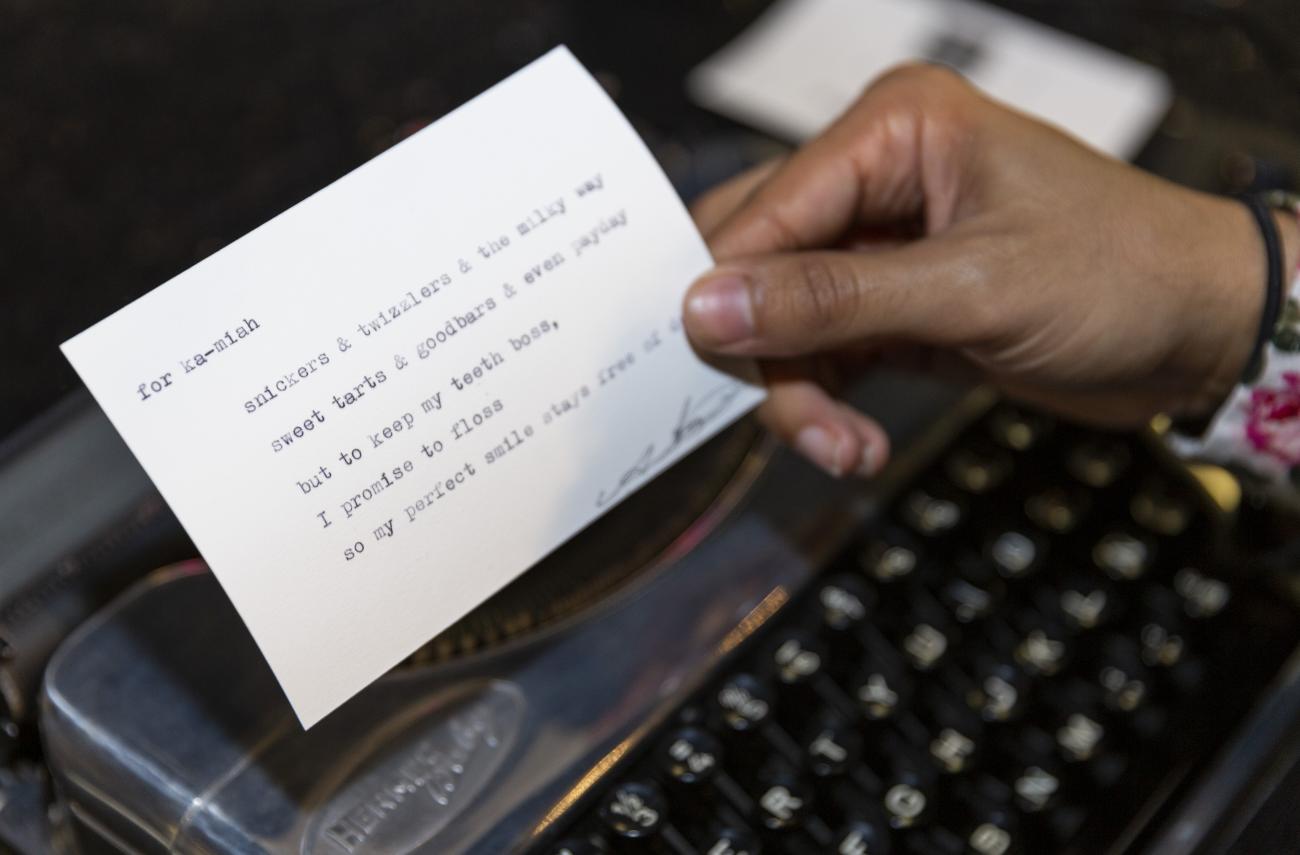 for ka-miah
snickers & twizzlers & the milky way
sweet tarts & goodbars & even payday
but to keep my teeth boss,
I promise to floss
so my perfect smile stays free of
HERMES